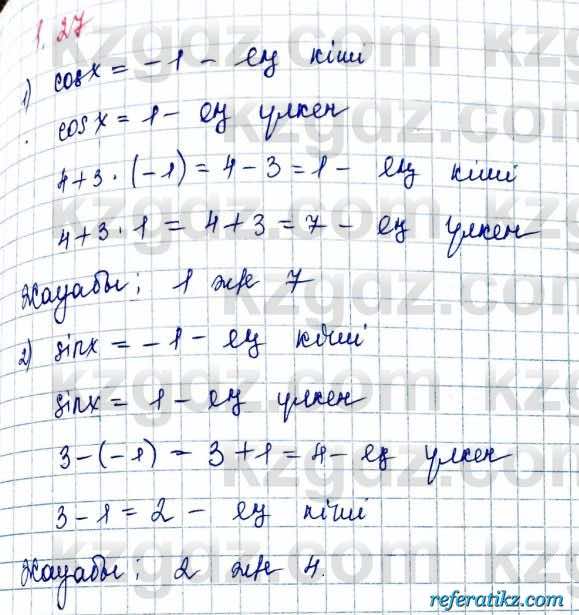 1.27
1) cosx = -1 - ең кіші
cosx = 1 - ең үлкен
4+3·(-1) = 4-3 = 1 - ең кіші
4+3·1 = 4+3 = 7 - ең үлкен
Жауабы; 1 және 7
2) sinx = -1 - ең кіші
sinx = 1 - ең үлкен
3-(-1) = 3+1 = 4 - ең үлкен
3-1 = 2 - ең кіші
Жауабы; 2 және 4.
referatikz.com